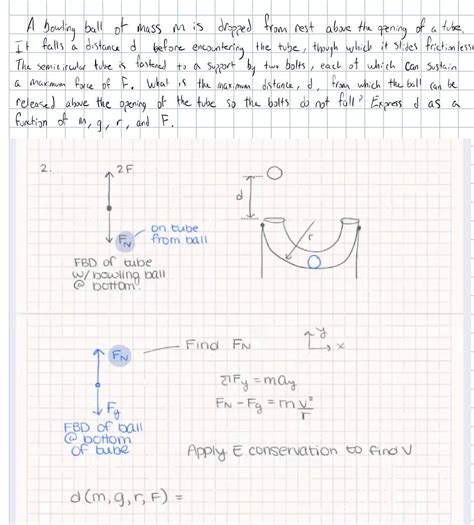 A bowling ball of mass m is dropped from rest above the opening of a tube.
It falls a distance d before encountering the tube, though which it slides frictionless
The semicircular tube is fastened to a support by two bolts, each of which can sustain
a maximum force of F. What is the maximum distance, d, from which the ball can be
released above the opening of the tube so the bolts do not fail? Express d as a
function of m, g, r, and F.
2.
2F
FN
on tube
from ball
FBD of tube
w/bowling ball
@ bottom.
d
r
FN
Fg
FBD of ball
@ bottom
of tube
Find FN
y
x
ΣFy = may
FN - Fg = m v²/r
Apply E conservation to find V
d(m,g,r,F) =